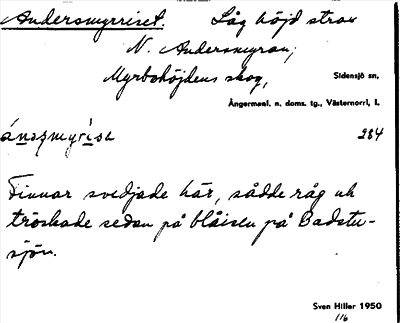 Andersmyrriset. Låg höjd strax
N. Andersmyran,
Myrbohöjdens skog,
Sidensjö sn,
Ångermanl. n. doms. tg., Västernorrl. l.
284
Finnar svedjade här, sådde råg och
tröskade sedan på blåisen på Badstu-
sjön.
Sven Hiller 1950
1/6